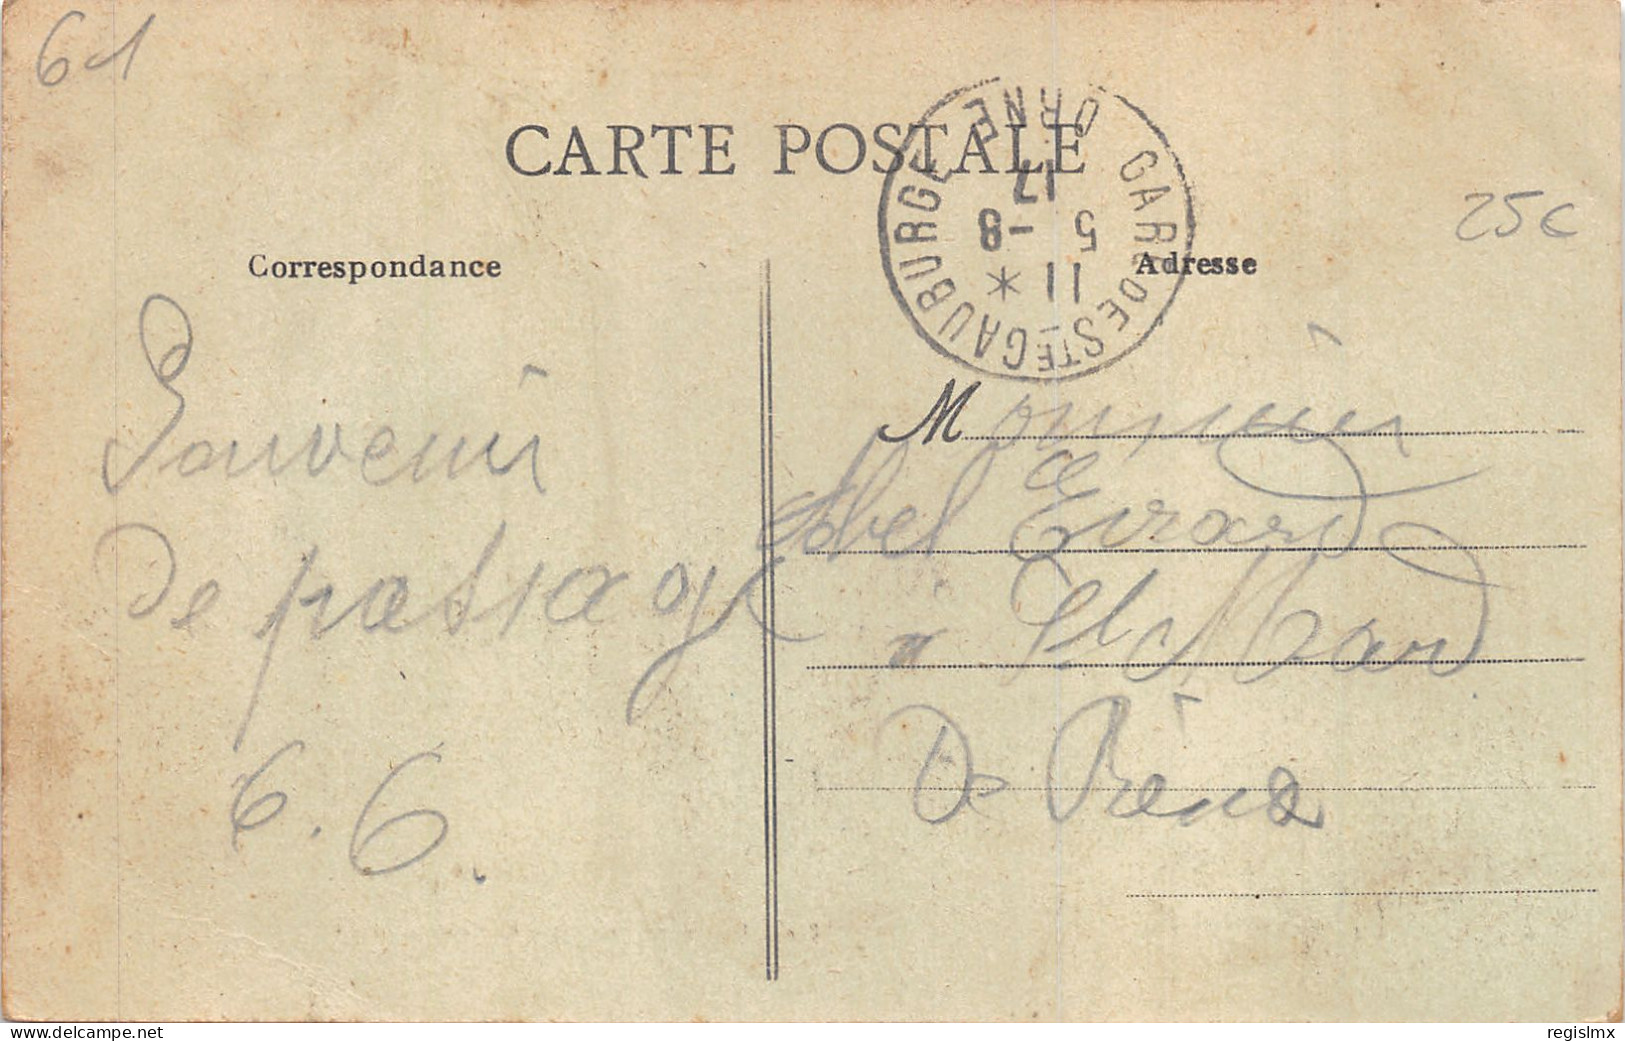 61
CARTE POSTALE
GARE DE STE GAUBURGE
ORNE
11 *
5 -8
17
25c
Correspondance
Adresse
Souvenir
De passage
G. G.
Monsieur
Abel Girard
a St Mard
De Réno
www.delcampe.net
regislmx